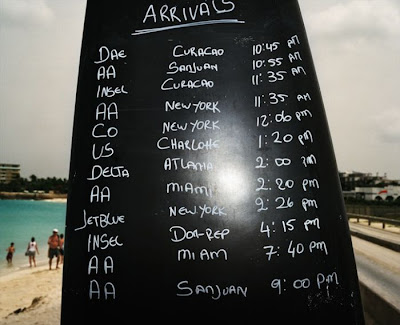 ARRIVALS
DAE CURACAO 10:45 PM
AA SANJUAN 10:55 AM
INSEL CURACAO 11:35 AM
AA NEWYORK 11:35 AM
CO NEWYORK 12:06 PM
US CHARLOTTE 1:20 PM
DELTA ATLANTA 2:00 PM
AA MIAMI 2:20 PM
JETBLUE NEWYORK 2:26 PM
INSEL DOM-REP 4:15 PM
AA MIAMI 7:40 PM
AA SANJUAN 9:00 PM